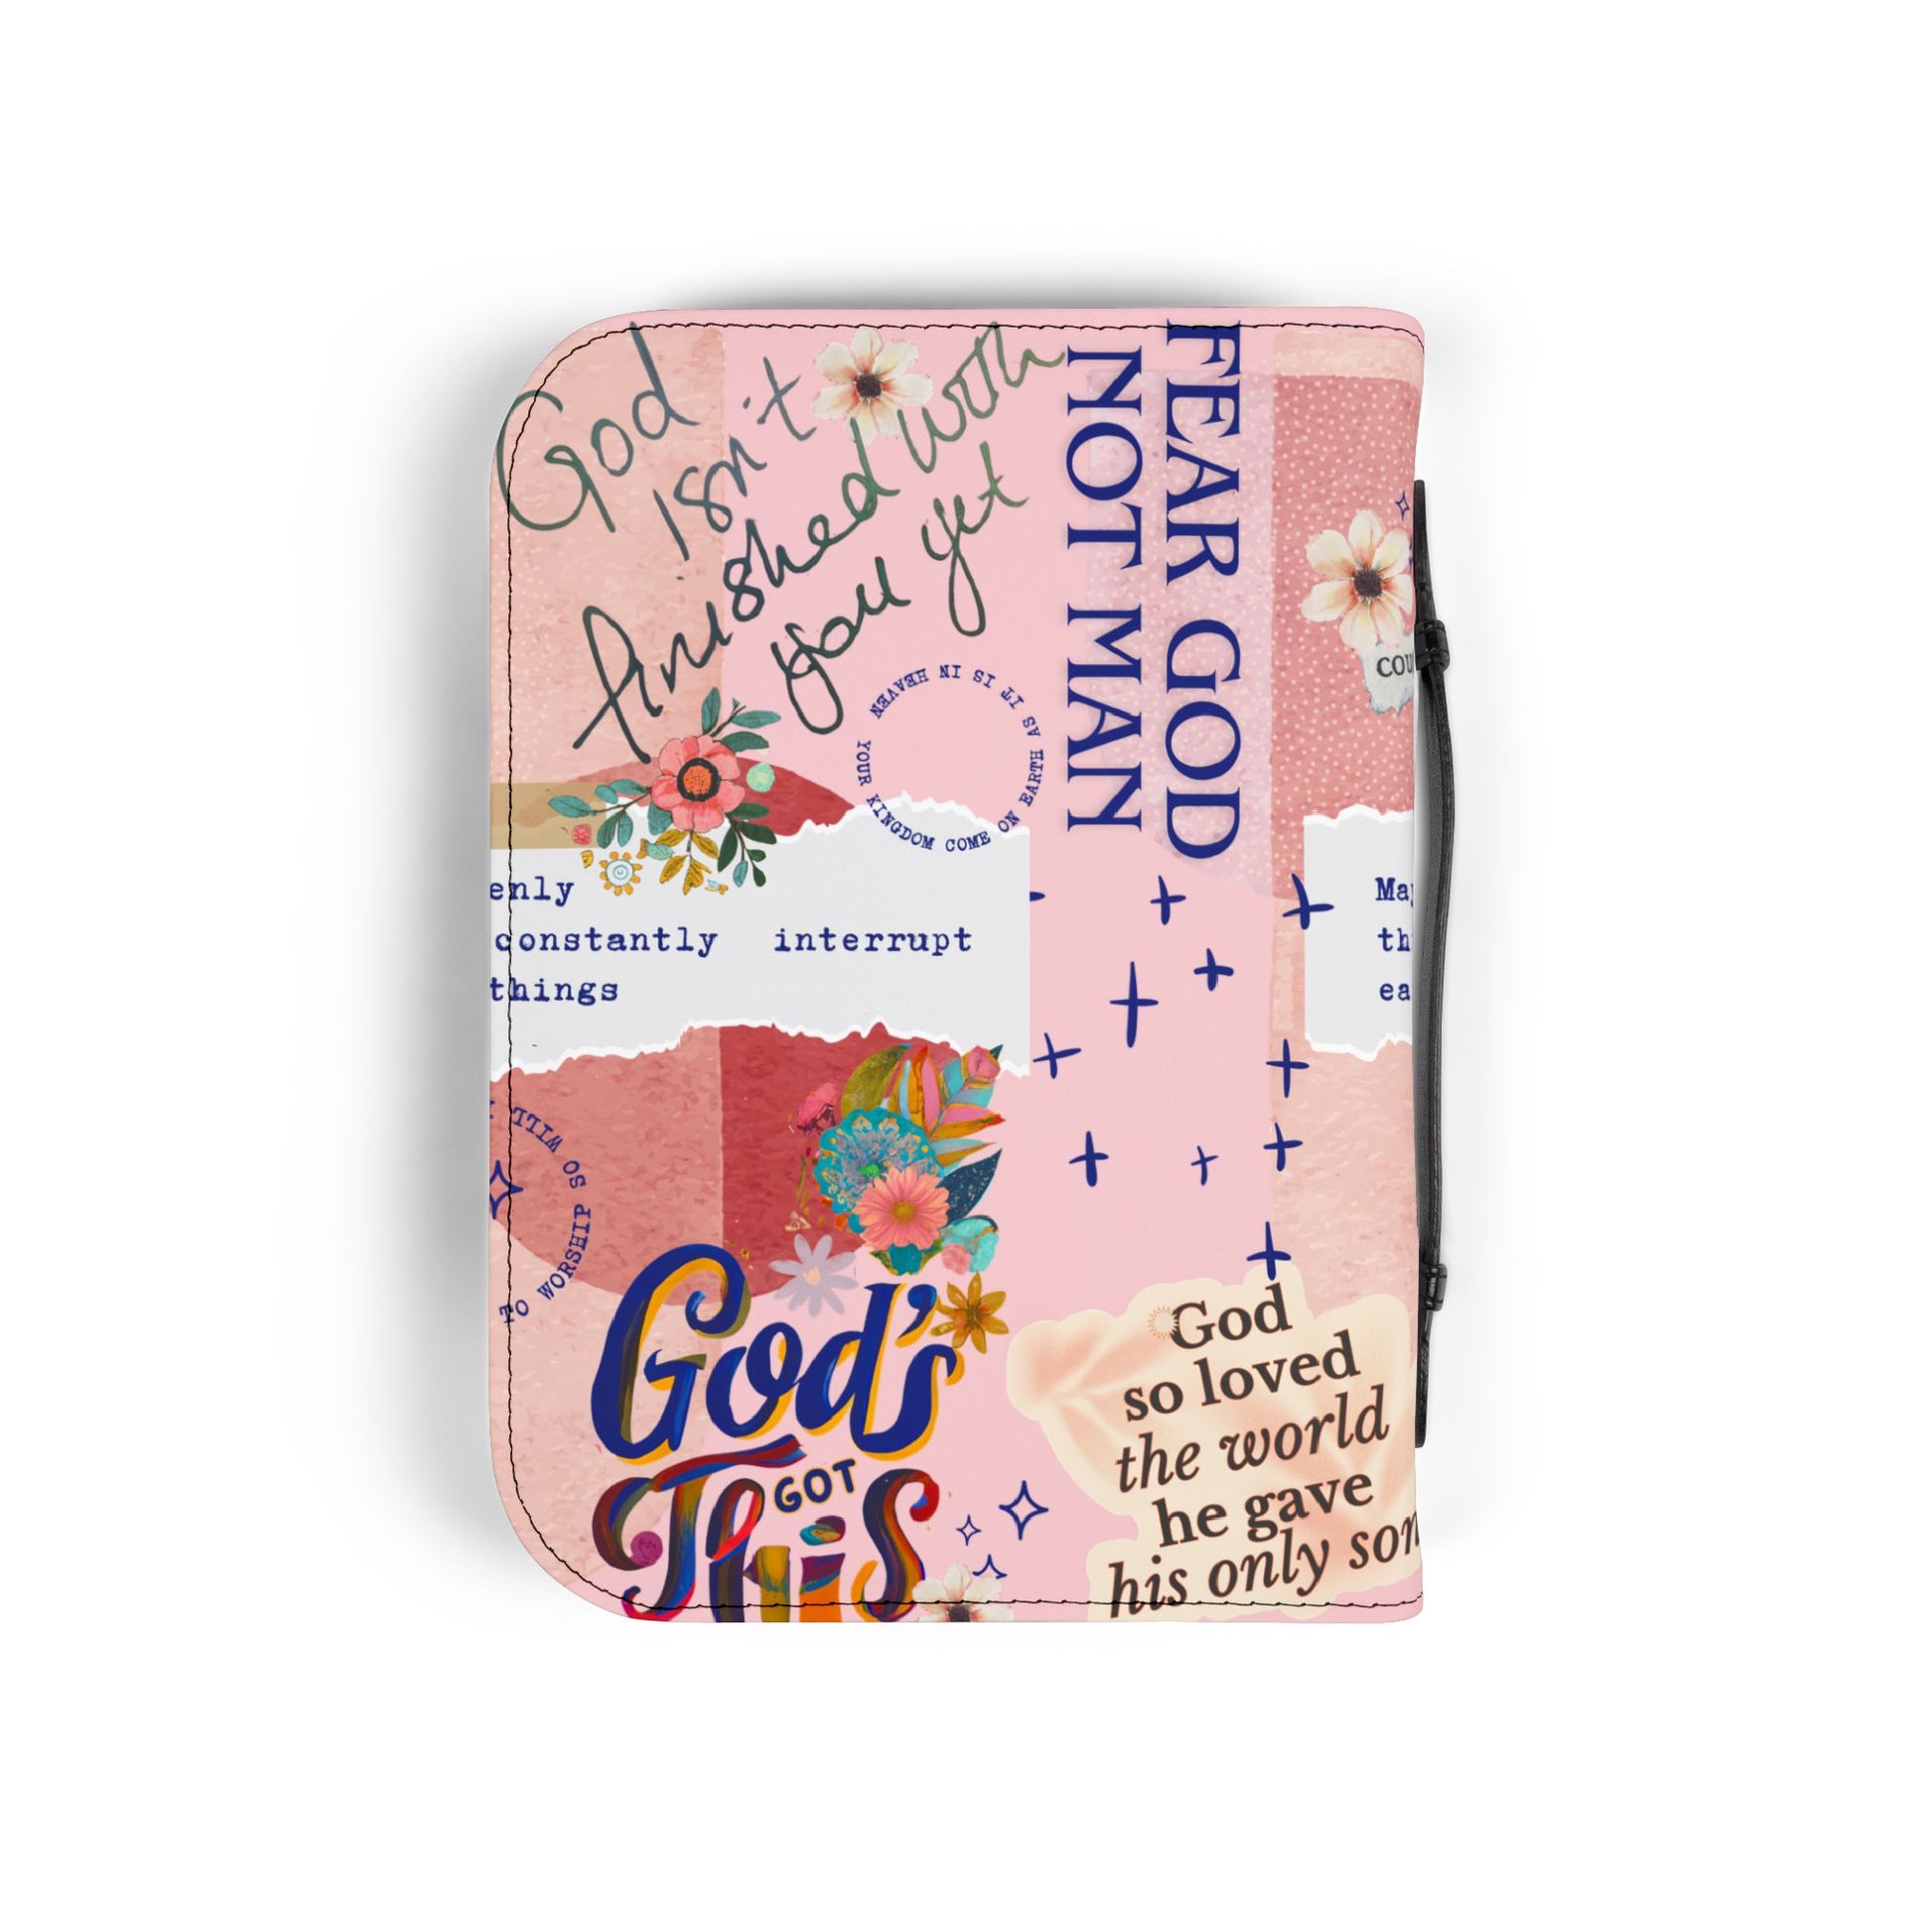 God
isn't
finished with
you yet
FEAR GOD
NOT MAN
YOUR KINGDOM COME ON EARTH AS IT IS IN HEAVEN
enly
constantly interrupt
things
May
th
ea
cou
TO WORSHIP SO WILL
God's
GOT
This
God
so loved
the world
he gave
his only son